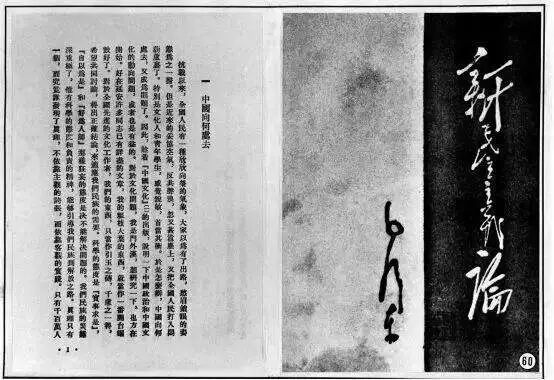 新民主主義論
毛澤東
一 中國向何處去
抗戰以來,全國人民有一種欣欣向榮的氣象,大家以為有了出路,愁眉鎖眼的姿
態為之一掃。但是近來的妥協空氣,反共聲浪,忽又甚囂塵上,又把全國人民打入悶
葫蘆裏了。特別是文化人和青年學生,感覺銳敏,首當其衝。於是怎麼辦,中國向何
處去,又成為問題了。因此,趁着『中國文化』的出版,說明一下中國政治和中國文
化的動向問題,或者也是有益的。對於文化問題,我是門外漢,想研究一下,也方在
開始。好在延安許多同志已有詳盡的文章,我的粗枝大葉的東西,就當作一番開台鑼
鼓好了。對於全國先進的文化工作者,我們的東西,只當作引玉之磚,千慮之一得,
希望共同討論,得出正確結論,來適應我們民族的需要。科學的態度是『實事求是』,
『自以為是』和『好為人師』那樣狂妄的態度是決不能解決問題的。我們民族的災難
深重極了,惟有科學的態度和負責的精神,能夠引導我們民族到解放之路。真理只有
一個,而究竟誰發現了真理,不依靠主觀的誇張,而依靠客觀的實踐。只有千百萬人
· 1 ·
60